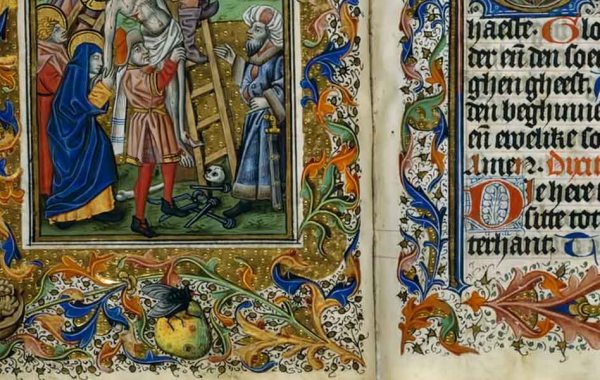 haeste. Glo
der en̄ den soe
ghen gheest.
den beghinne
en̄ ewelike so
Amen. Dixit
Die here
sitte tot
terhant.